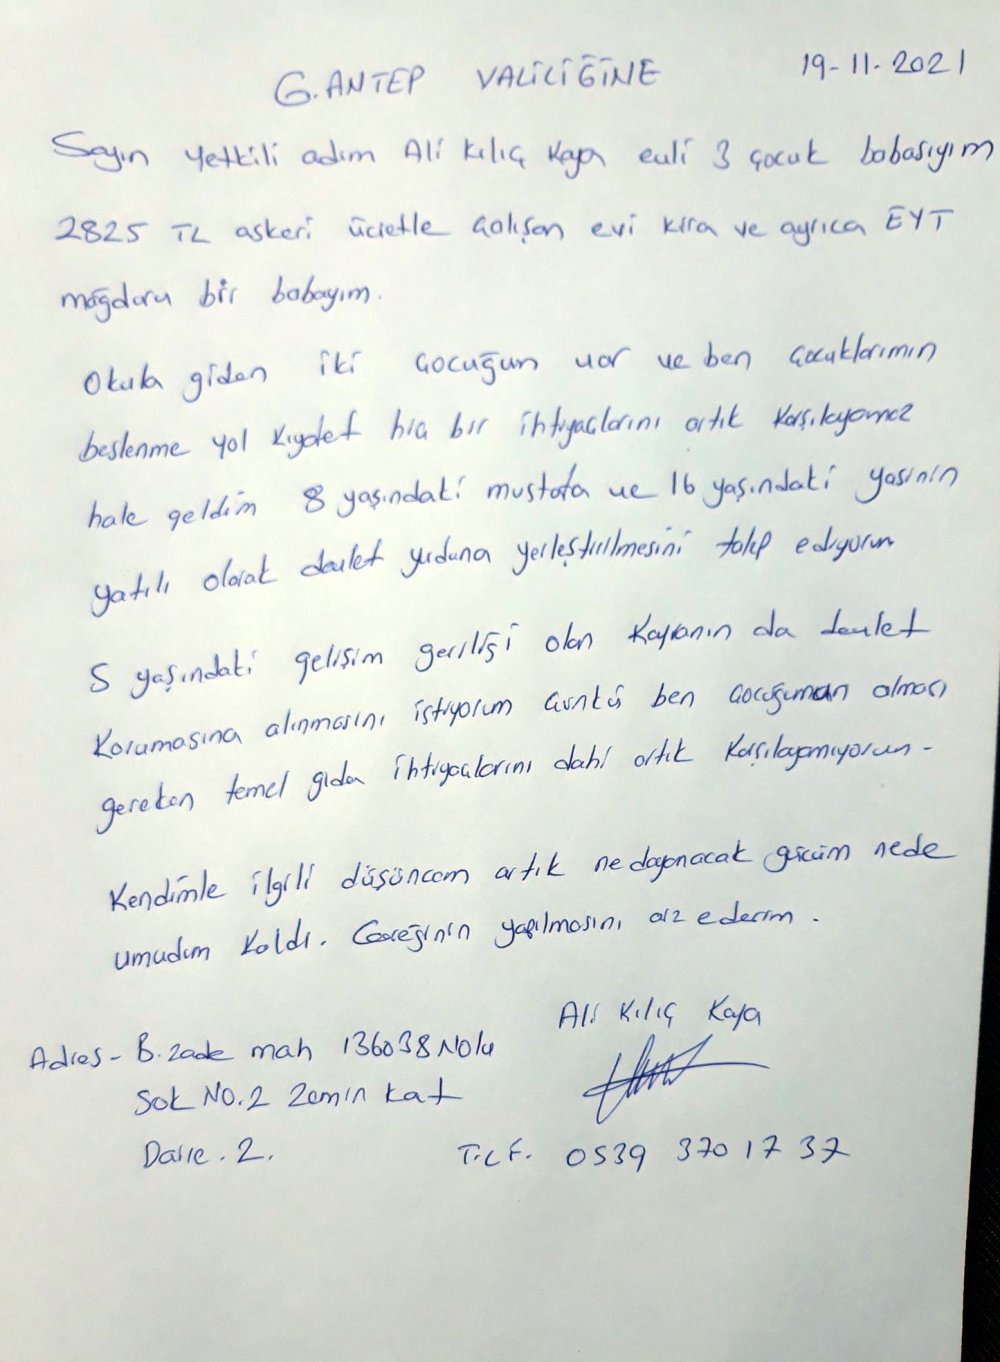 G.ANTEP VALİLİĞİNE 19-11-2021
Sayın yetkili adım Ali Kılıç Kaya evli 3 çocuk babasıyım
2825 TL askeri ücretle çalışan evi kira ve ayrıca EYT
mağduru bir babayım.
Okula giden iki çocuğum var ve ben çocuklarımın
beslenme yol kıyafet hiç bir ihtiyaçlarını artık karşılayamaz
hale geldim 8 yaşındaki mustafa ve 16 yaşındaki yasinin
yatılı olarak devlet yurduna yerleştirilmesini talep ediyorum
5 yaşındaki gelişim geriliği olan Kayranın da devlet
korumasına alınmasını istiyorum çünkü ben çocuğumun alması
gereken temel gıda ihtiyaçlarını dahi artık karşılayamıyorum -
Kendimle ilgili düşüncem artık ne dayanacak gücüm nede
umudum kaldı. Gereğinin yapılmasını arz ederim.
Ali Kılıç Kaya
Adres - B.zade mah 136038 Nolu
Sok No.2 Zemin kat
Daire.2. T.L F. 0539 370 17 37